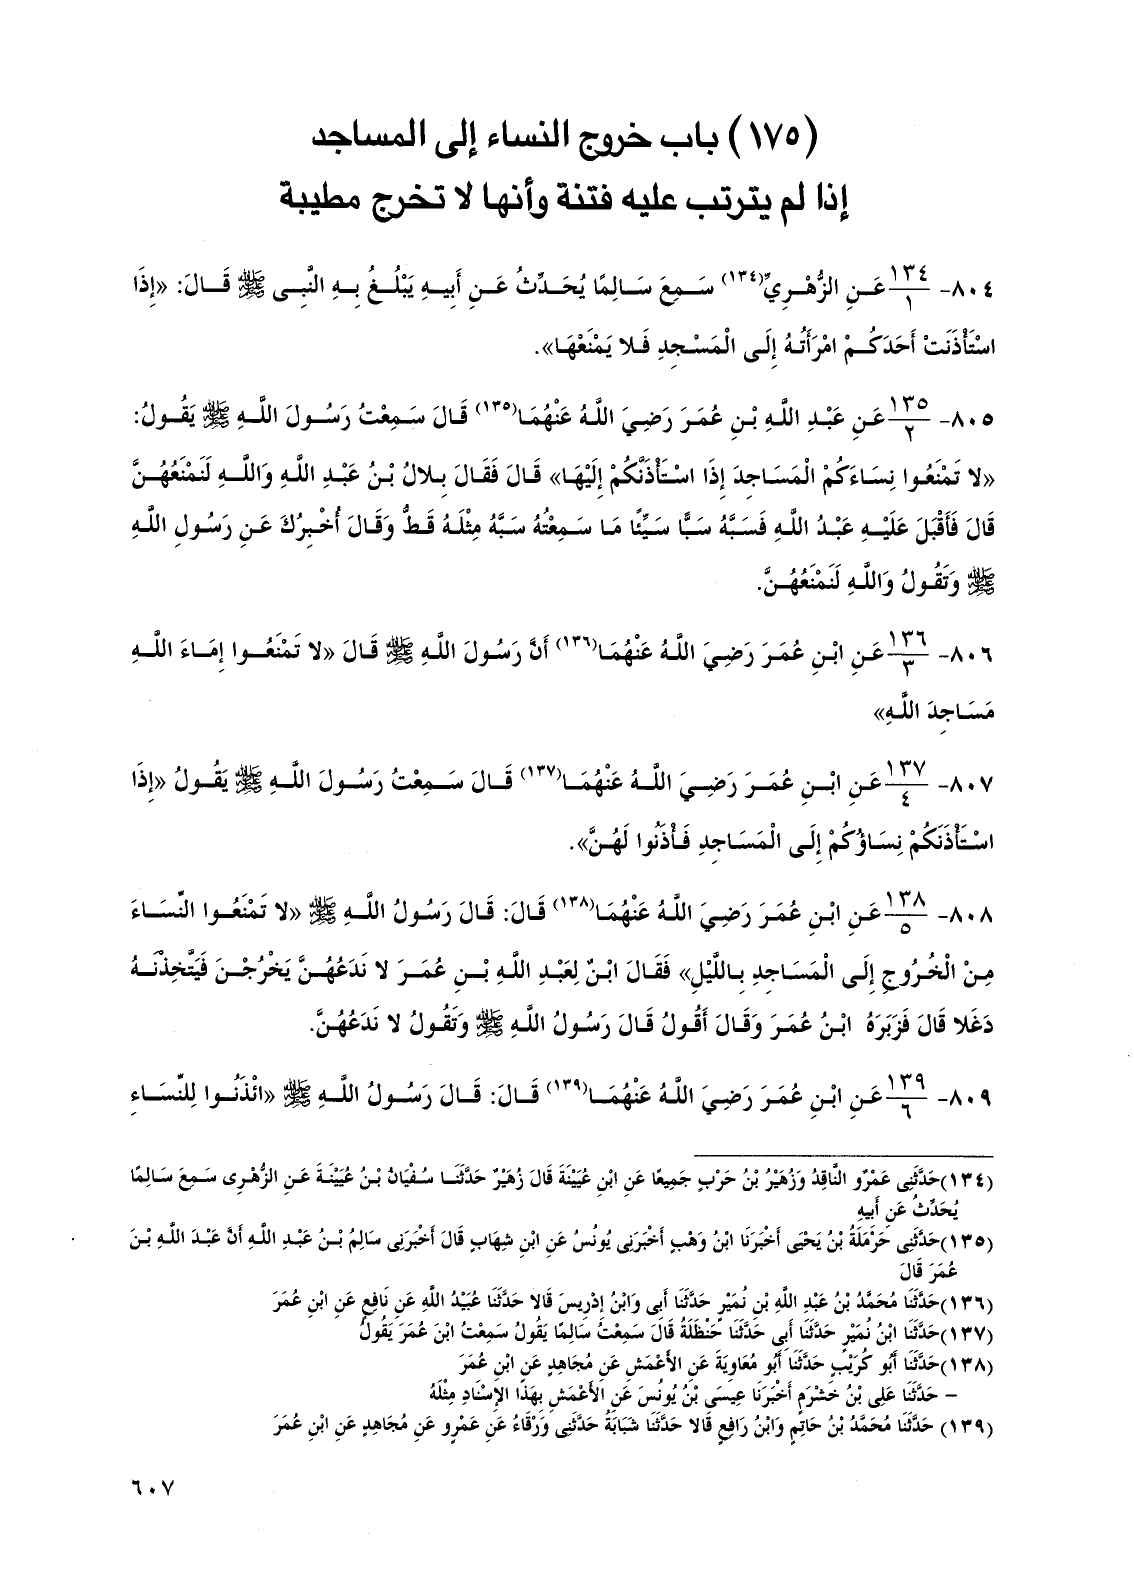 (١٧٥) باب خروج النساء إلى المساجد
إذا لم يترتب عليه فتنة وأنها لا تخرج مطيبة
٨٠٤- ١٣٤/١ عَنِ الزُّهْرِيِّ(١٣٤) سَمِعَ سَالِمًا يُحَدِّثُ عَنِ أَبِيهِ يَبْلُغُ بِهِ النَّبِى ﷺ قَالَ: «إِذَا
اسْتَأْذَنَتْ أَحَدَكُمْ امْرَأَتُهُ إِلَى الْمَسْجِدِ فَلا يَمْنَعْهَا».
٨٠٥- ١٣٥/٢ عَنِ عَبْدِ اللَّهِ بْنِ عُمَرَ رَضِيَ اللَّهُ عَنْهُمَا(١٣٥) قَالَ سَمِعْتُ رَسُولَ اللَّهِ ﷺ يَقُولُ:
«لا تَمْنَعُوا نِسَاءَكُمْ الْمَسَاجِدَ إِذَا اسْتَأْذَنَّكُمْ إِلَيْهَا» قَالَ فَقَالَ بِلالُ بْنُ عَبْدِ اللَّهِ وَاللَّهِ لَنَمْنَعُهُنَّ
قَالَ فَأَقْبَلَ عَلَيْهِ عَبْدُ اللَّهِ فَسَبَّهُ سَبًّا سَيِّئًا مَا سَمِعْتُهُ سَبَّهُ مِثْلَهُ قَطُّ وَقَالَ أُخْبِرُكَ عَنِ رَسُولِ اللَّهِ
ﷺ وَتَقُولُ وَاللَّهِ لَنَمْنَعُهُنَّ.
٨٠٦- ١٣٦/٣ عَنِ ابْنِ عُمَرَ رَضِيَ اللَّهُ عَنْهُمَا(١٣٦) أَنَّ رَسُولَ اللَّهِ ﷺ قَالَ «لا تَمْنَعُوا إِمَاءَ اللَّهِ
مَسَاجِدَ اللَّهِ»
٨٠٧- ١٣٧/٤ عَنِ ابْنِ عُمَرَ رَضِيَ اللَّهُ عَنْهُمَا(١٣٧) قَالَ سَمِعْتُ رَسُولَ اللَّهِ ﷺ يَقُولُ «إِذَا
اسْتَأْذَنَكُمْ نِسَاؤُكُمْ إِلَى الْمَسَاجِدِ فَأْذَنُوا لَهُنَّ».
٨٠٨- ١٣٨/٥ عَنِ ابْنِ عُمَرَ رَضِيَ اللَّهُ عَنْهُمَا(١٣٨) قَالَ: قَالَ رَسُولُ اللَّهِ ﷺ «لا تَمْنَعُوا النِّسَاءَ
مِنْ الْخُرُوجِ إِلَى الْمَسَاجِدِ بِاللَّيْلِ» فَقَالَ ابْنٌ لِعَبْدِ اللَّهِ بْنِ عُمَرَ لا نَدَعُهُنَّ يَخْرُجْنَ فَيَتَّخِذْنَهُ
دَغَلا قَالَ فَزَبَرَهُ ابْنُ عُمَرَ وَقَالَ أَقُولُ قَالَ رَسُولُ اللَّهِ ﷺ وَتَقُولُ لا نَدَعُهُنَّ.
٨٠٩- ١٣٩/٦ عَنِ ابْنِ عُمَرَ رَضِيَ اللَّهُ عَنْهُمَا(١٣٩) قَالَ: قَالَ رَسُولُ اللَّهِ ﷺ «ائْذَنُوا لِلنِّسَاءِ
(١٣٤)حَدَّثَنِى عَمْرٌو النَّاقِدُ وَزُهَيْرُ بْنُ حَرْبٍ جَمِيعًا عَنِ ابْنِ عُيَيْنَةَ قَالَ زُهَيْرٌ حَدَّثَنَا سُفْيَانُ بْنُ عُيَيْنَةَ عَنِ الزُّهْرِى سَمِعَ سَالِمًا
يُحَدِّثُ عَنِ أَبِيهِ
(١٣٥)حَدَّثَنِى حَرْمَلَةُ بْنُ يَحْيَى أَخْبَرَنَا ابْنُ وَهْبٍ أَخْبَرَنِى يُونُسُ عَنِ ابْنِ شِهَابٍ قَالَ أَخْبَرَنِى سَالِمُ بْنُ عَبْدِ اللَّهِ أَنَّ عَبْدَ اللَّهِ بْنَ
عُمَرَ قَالَ
(١٣٦)حَدَّثَنَا مُحَمَّدُ بْنُ عَبْدِ اللَّهِ بْنِ نُمَيْرٍ حَدَّثَنَا أَبِى وَابْنُ إِدْرِيسَ قَالا حَدَّثَنَا عُبَيْدُ اللَّهِ عَنِ نَافِعٍ عَنِ ابْنِ عُمَرَ
(١٣٧)حَدَّثَنَا ابْنُ نُمَيْرٍ حَدَّثَنَا أَبِى حَدَّثَنَا حَنْظَلَةُ قَالَ سَمِعْتُ سَالِمًا يَقُولُ سَمِعْتُ ابْنَ عُمَرَ يَقُولُ
(١٣٨)حَدَّثَنَا أَبُو كُرَيْبٍ حَدَّثَنَا أَبُو مُعَاوِيَةَ عَنِ الأَعْمَشِ عَنِ مُجَاهِدٍ عَنِ ابْنِ عُمَرَ
– حَدَّثَنَا عَلِى بْنُ خَشْرَمٍ أَخْبَرَنَا عِيسَى بْنُ يُونُسَ عَنِ الأَعْمَشِ بِهَذَا الإِسْنَادِ مِثْلَهُ
(١٣٩) حَدَّثَنَا مُحَمَّدُ بْنُ حَاتِمٍ وَابْنُ رَافِعٍ قَالا حَدَّثَنَا شَبَابَةُ حَدَّثَنِى وَرْقَاءُ عَنِ عَمْرٍو عَنِ مُجَاهِدٍ عَنِ ابْنِ عُمَرَ
٦٠٧